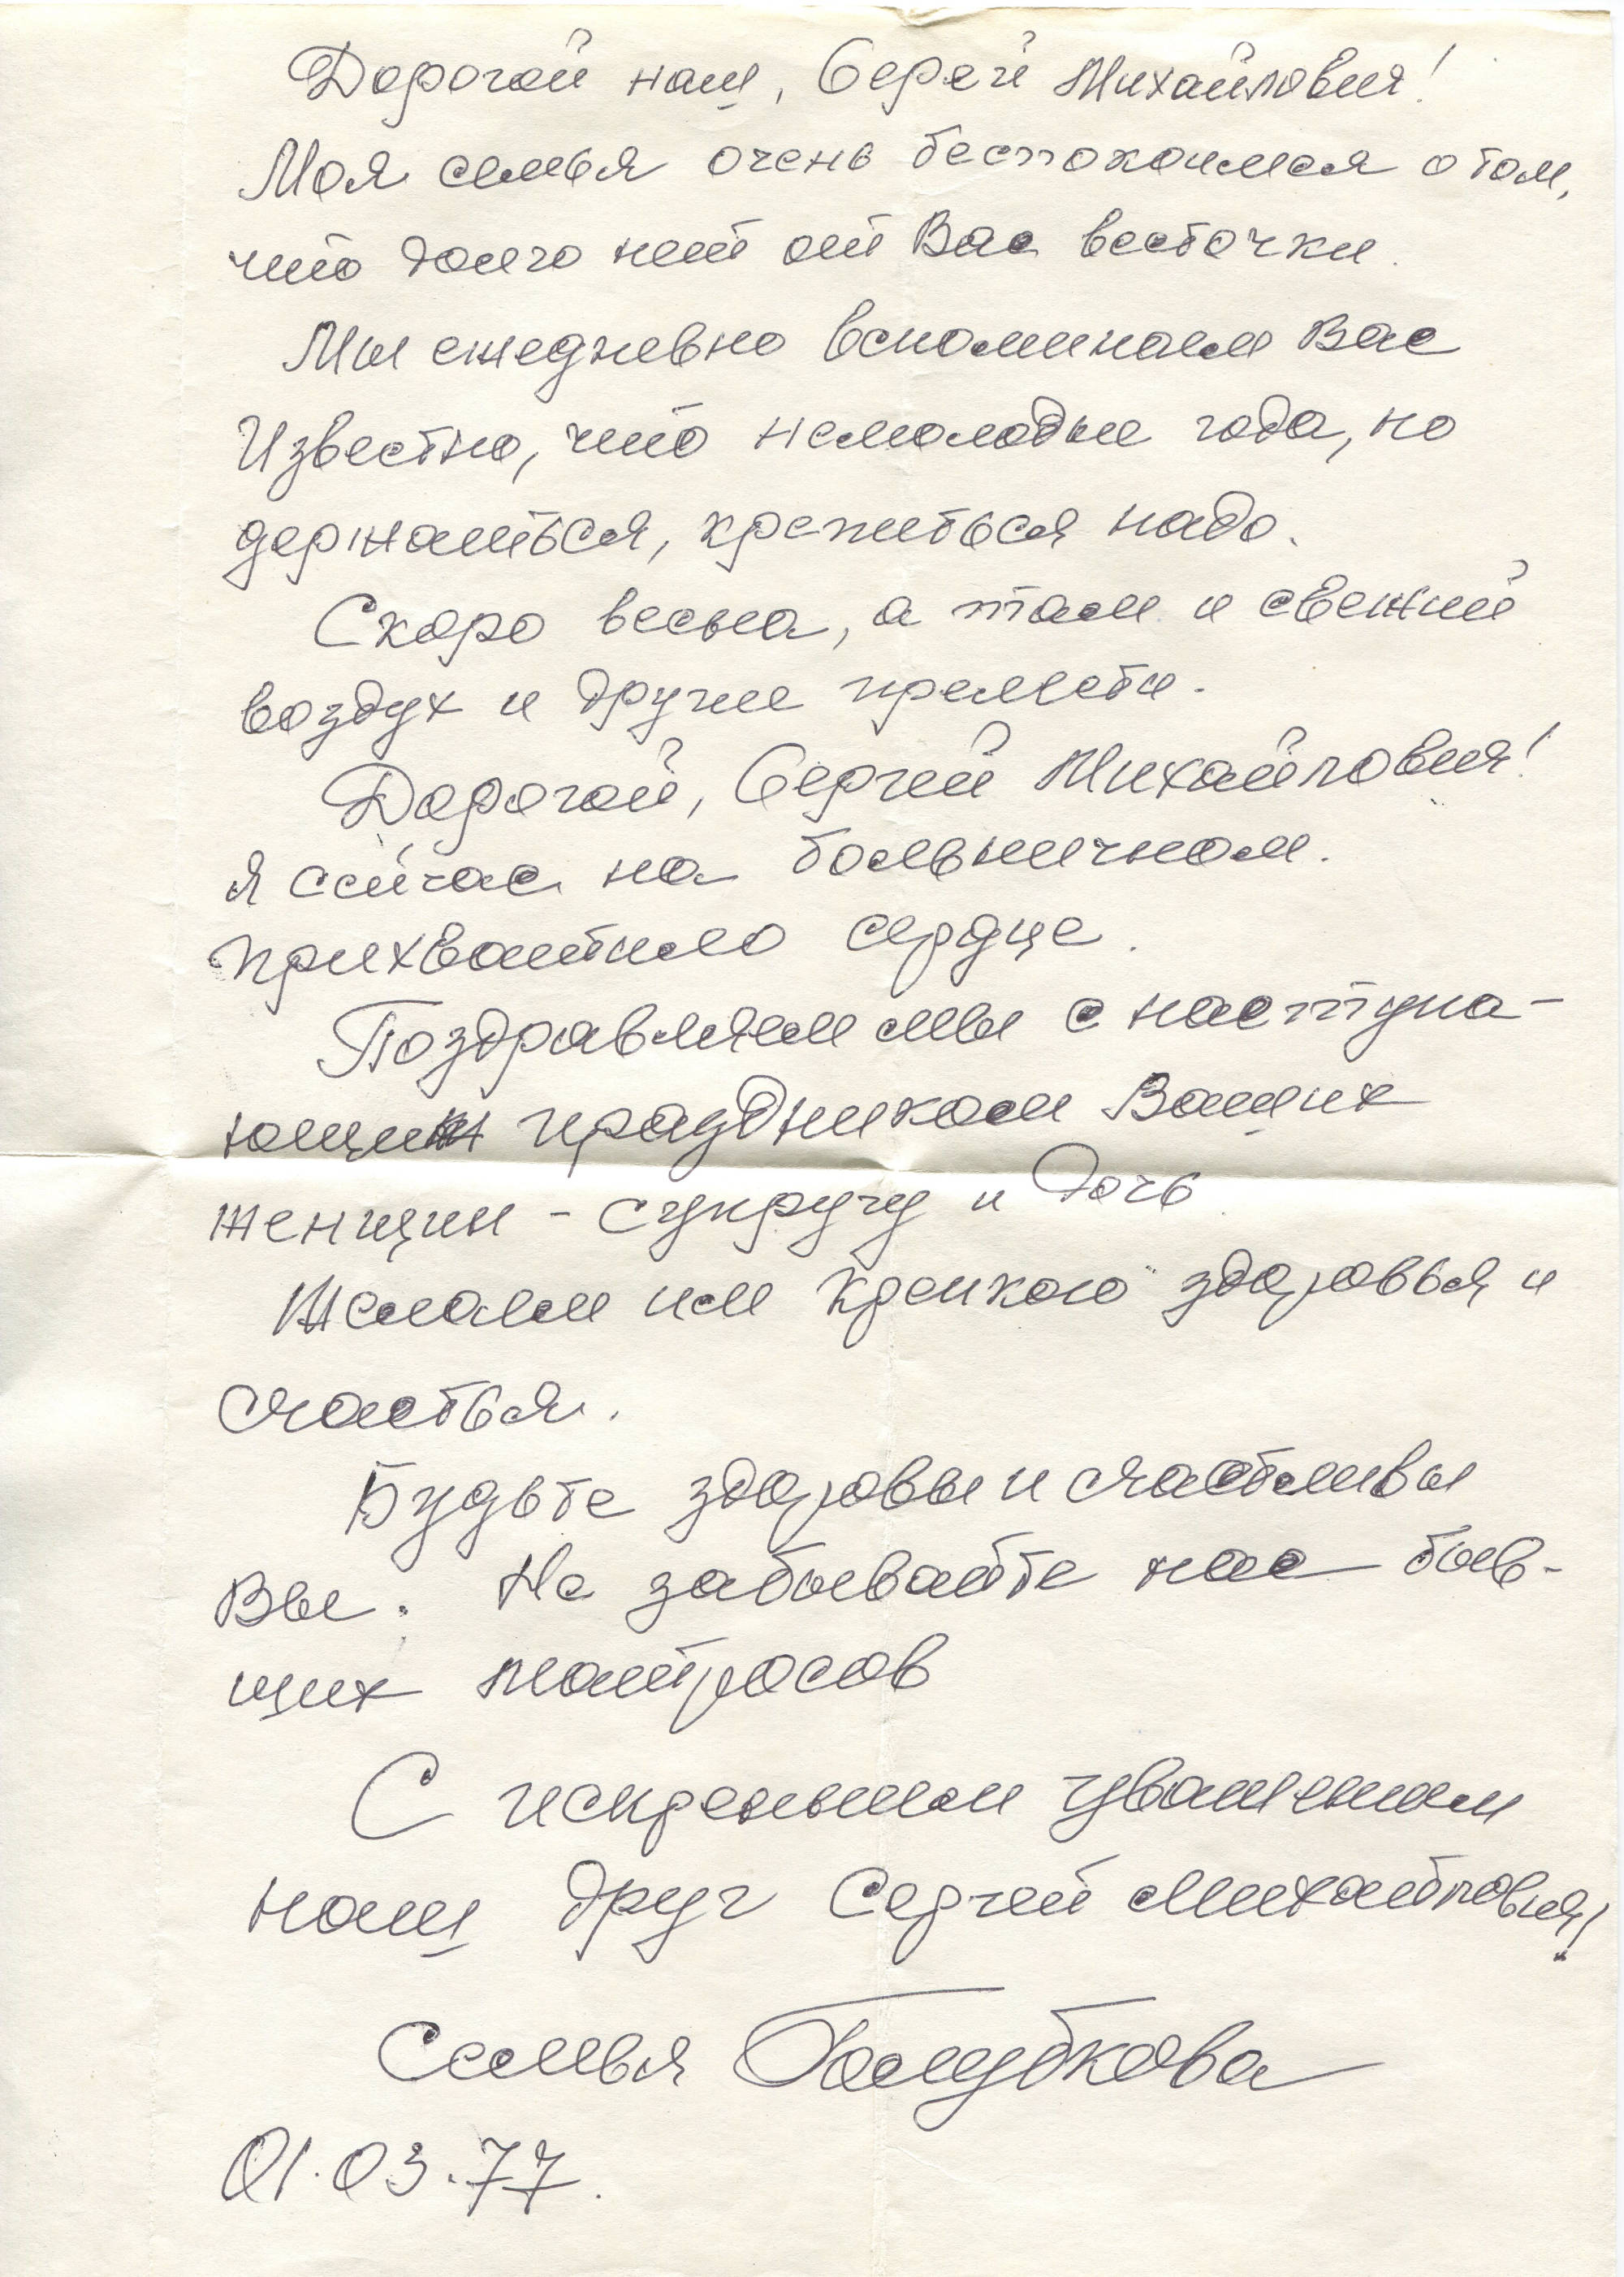 Дорогой наш, Сергей Михайлович!
Моя семья очень беспокоимся о том,
что долго нет от Вас весточки.
Мы ежедневно вспоминаем Вас
Известно, что немолодые года, но
держаться, крепиться надо.
Скоро весна, а там и свежий
воздух и другие приметы.
Дорогой, Сергей Михайлович!
я сейчас на больничном.
прихватило сердце.
Поздравляем мы с наступа-
ющим праздником Ваших
женщин - супругу и дочь.
Желаем им крепкого здоровья и
счастья.
Будьте здоровы и счастливы
Вы. Не забывайте нас быв-
ших матросов
С искренним уважением
наш друг Сергей Михайлович!
Семья Голубкова
01.03.77.